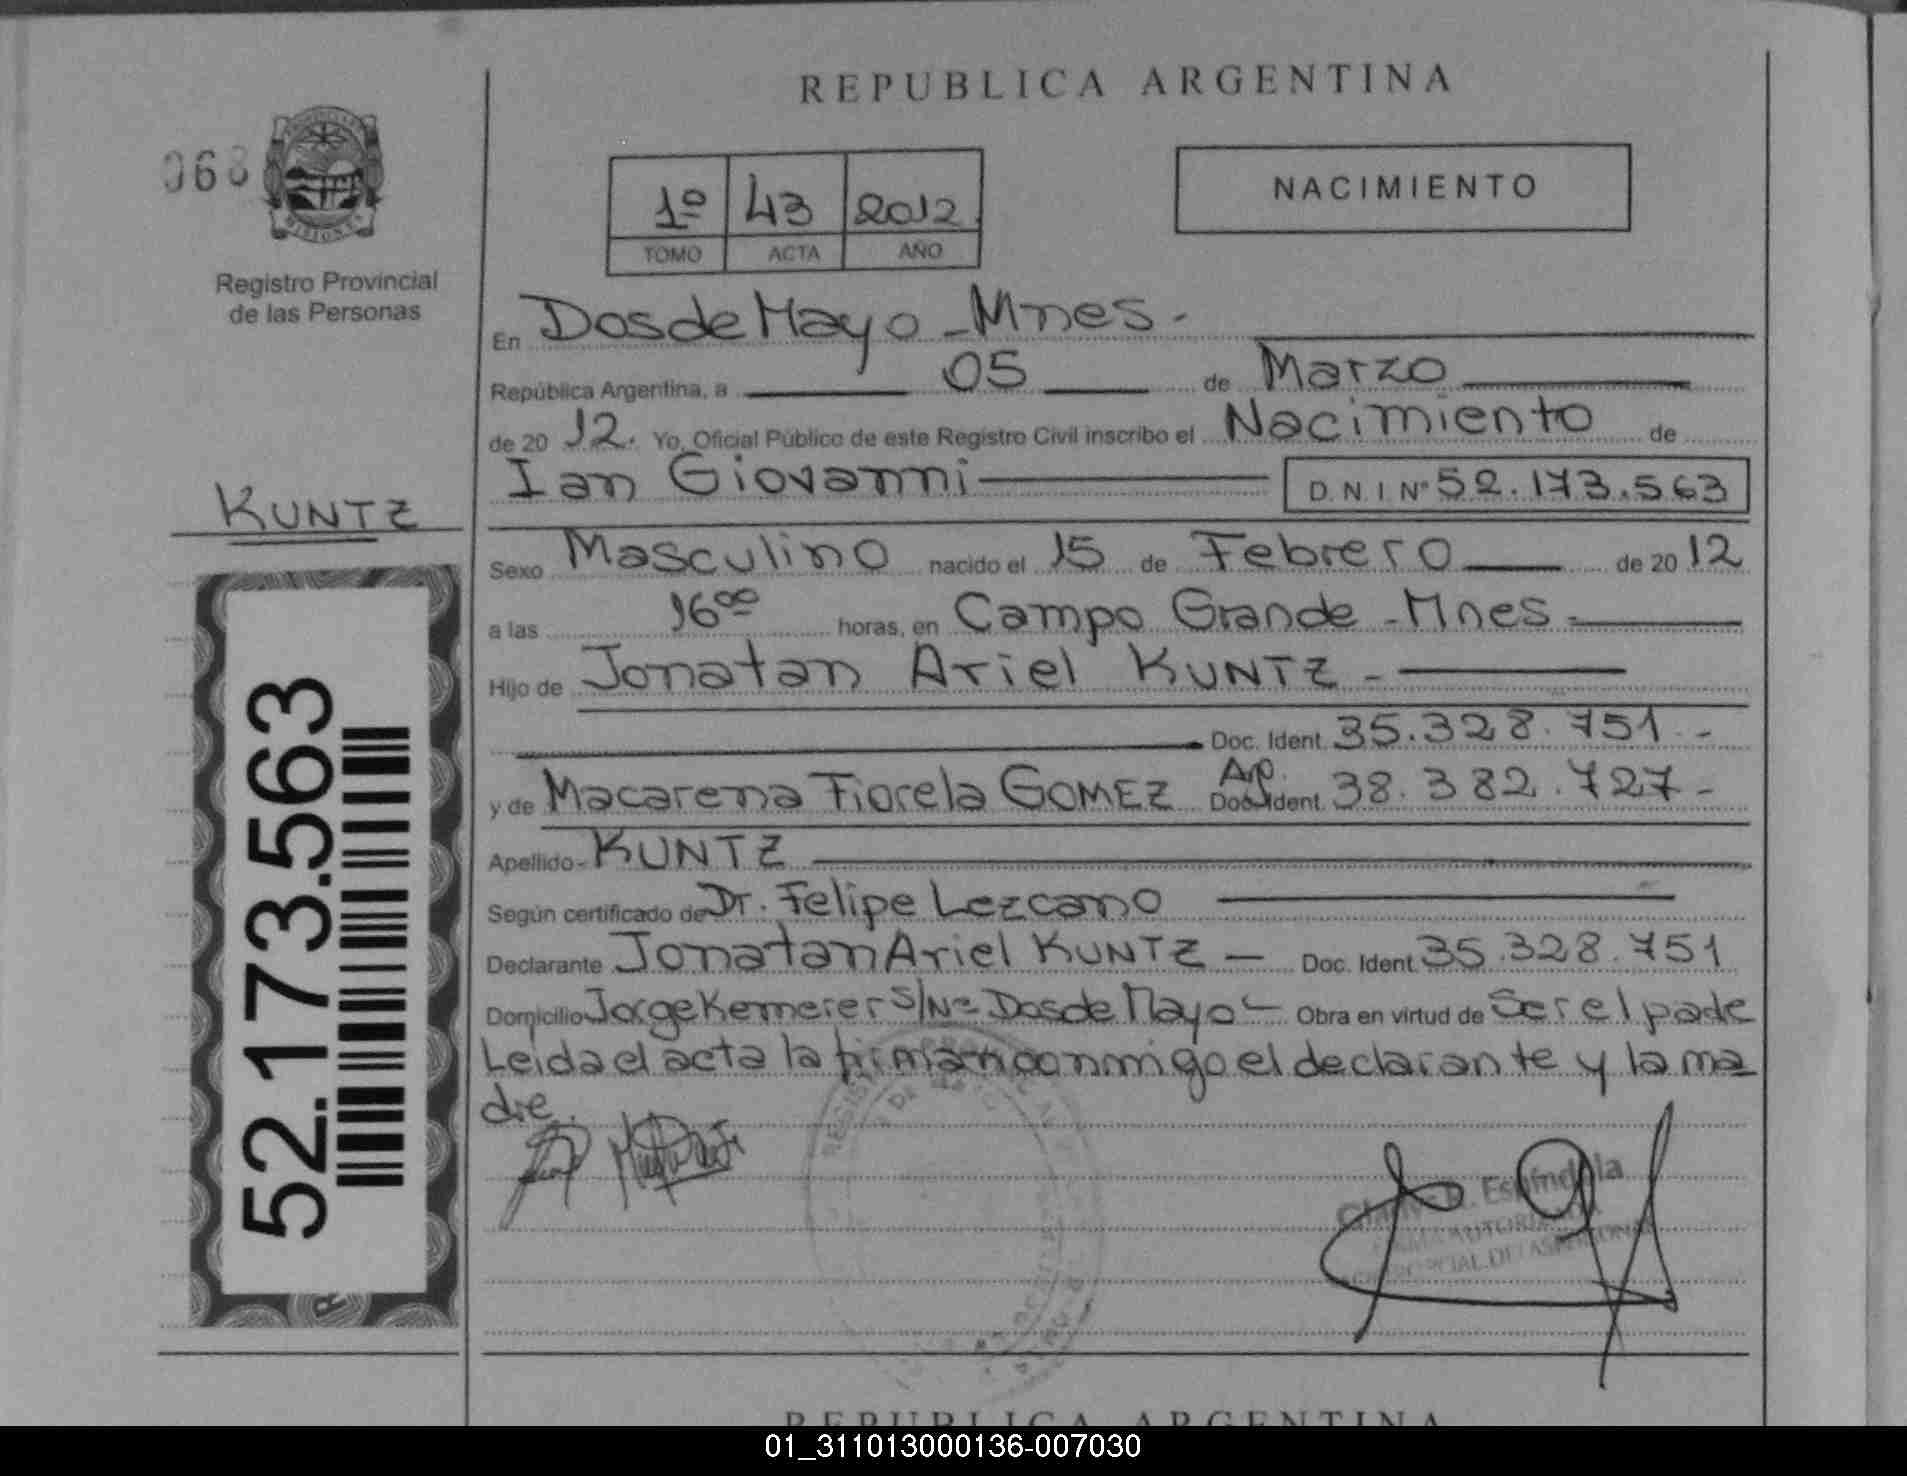 REPUBLICA ARGENTINA
068
1º 43 2012
TOMO ACTA AÑO
NACIMIENTO
Registro Provincial
de las Personas
En Dos de Mayo - Mnes.-
República Argentina, a 05 de Marzo
de 20 12. Yo, Oficial Público de este Registro Civil inscribo el Nacimiento de
Ian Giovanni D.N.I Nº 52.173.563
KUNTZ
Sexo Masculino nacido el 15 de Febrero de 20 12
a las 16 00 horas, en Campo Grande - Mnes
Hijo de Jonatan Ariel KUNTZ -
Doc. Ident. 35.328.751.-
y de Macarena Fiorela GOMEZ Doc. Ident. 38.382.727-
Apellido- KUNTZ
Según certificado de Dr. Felipe Lezcano
Declarante Jonatan Ariel KUNTZ - Doc. Ident. 35.328.751
Domicilio Jorge Kemerer S/Nº Dos de Mayo - Obra en virtud de Ser el padre
Leida el acta la firman conmigo el declarante y la ma
dre.
52.173.563
Espíndola
REPUBLICA ARGENTINA
01_311013000136-007030